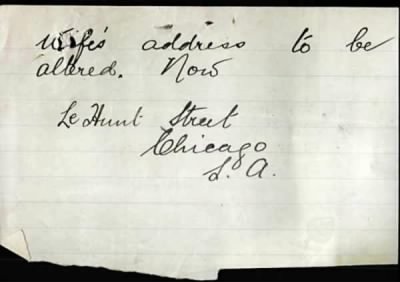 wife's address to be
altered. Now
Le Hunt Street
Chicago
S. A.